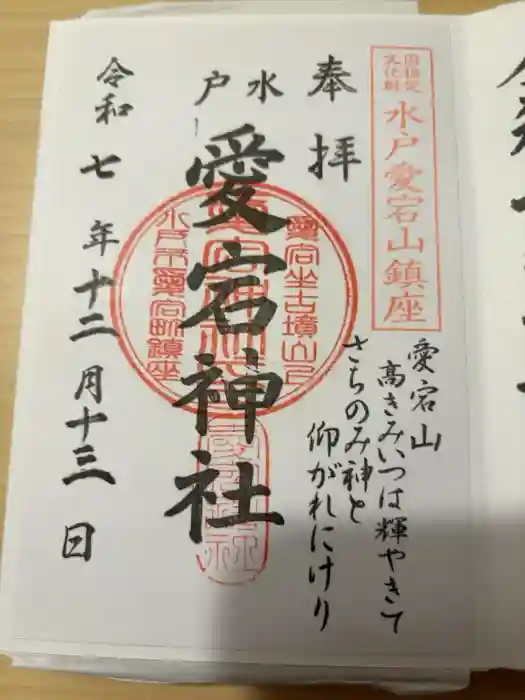 国指定
文化財
水戸愛宕山鎮座
奉拝
愛宕山
高きみいつは輝やきて
さちのみ神と
仰がれにけり
水戸
愛宕神社
愛宕坐古墳山乃
愛宕神社
水戸市愛宕町鎮座
令和七年十二月十三日